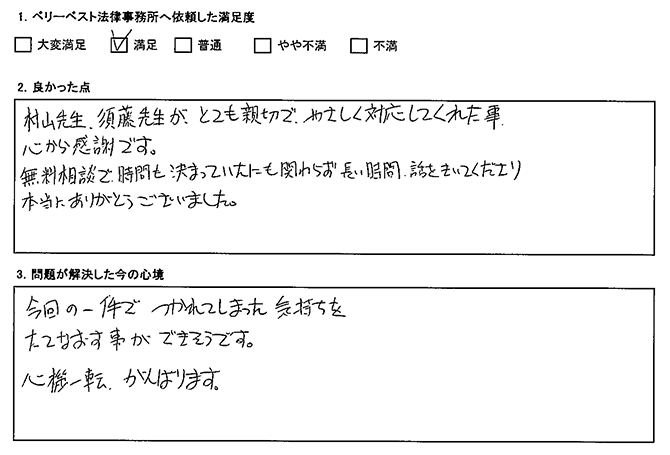 1. ベリーベスト法律事務所へ依頼した満足度
□ 大変満足 ☑ 満足 □ 普通 □ やや不満 □ 不満
2. 良かった点
村山先生、須藤先生が、とても親切で、やさしく対応してくれた事、
心から感謝です。
無料相談で、時間も決まっていたにも関わらず長い時間、話をきいてくださり
本当にありがとうございました。
3. 問題が解決した今の心境
今回の一件で つかれてしまった 気持ちを
たてなおす事が できそうです。
心機一転、がんばります。